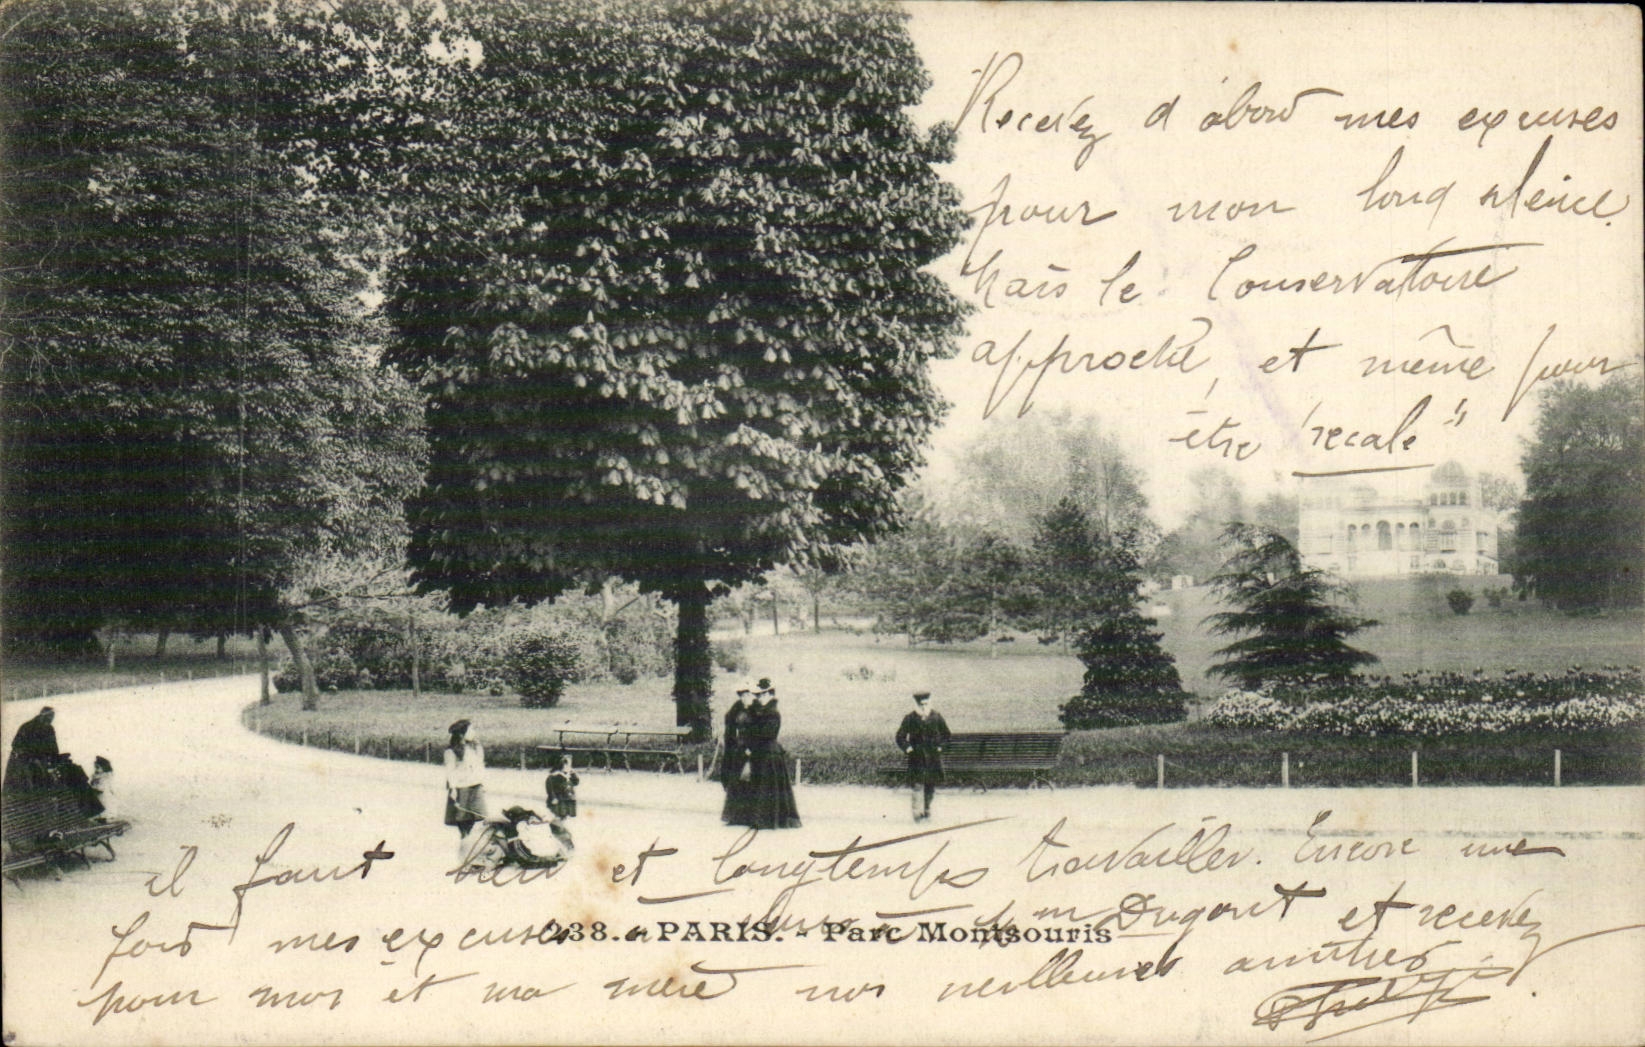 Recevez d'abord mes excuses
pour mon long silence.
Mais le Conservatoire
approche, et même pour
être "recalé"
il faut bien et longtemps travailler. Encore une
fois mes excuses à Mm Dugout et recevez
pour moi et ma mère nos meilleures amitiés.
238. - PARIS. - Parc Montsouris